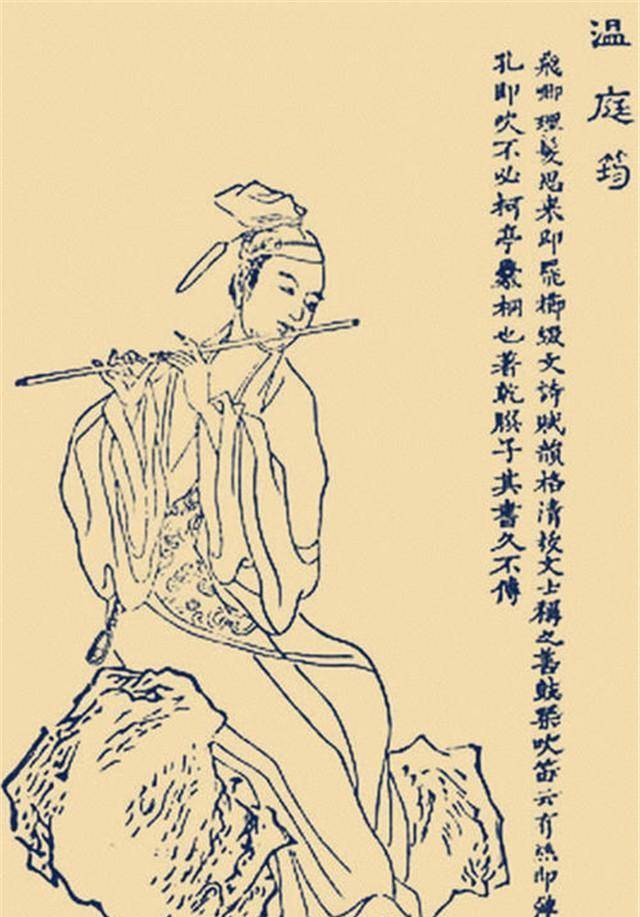 温庭筠
飛卿理髮思来即罷櫛綴文詩賦韻格清拔文士稱之善鼓琴吹笛云有絲即彈
孔即吹不必柯亭爨桐也著乾𦠆子其書久不傳